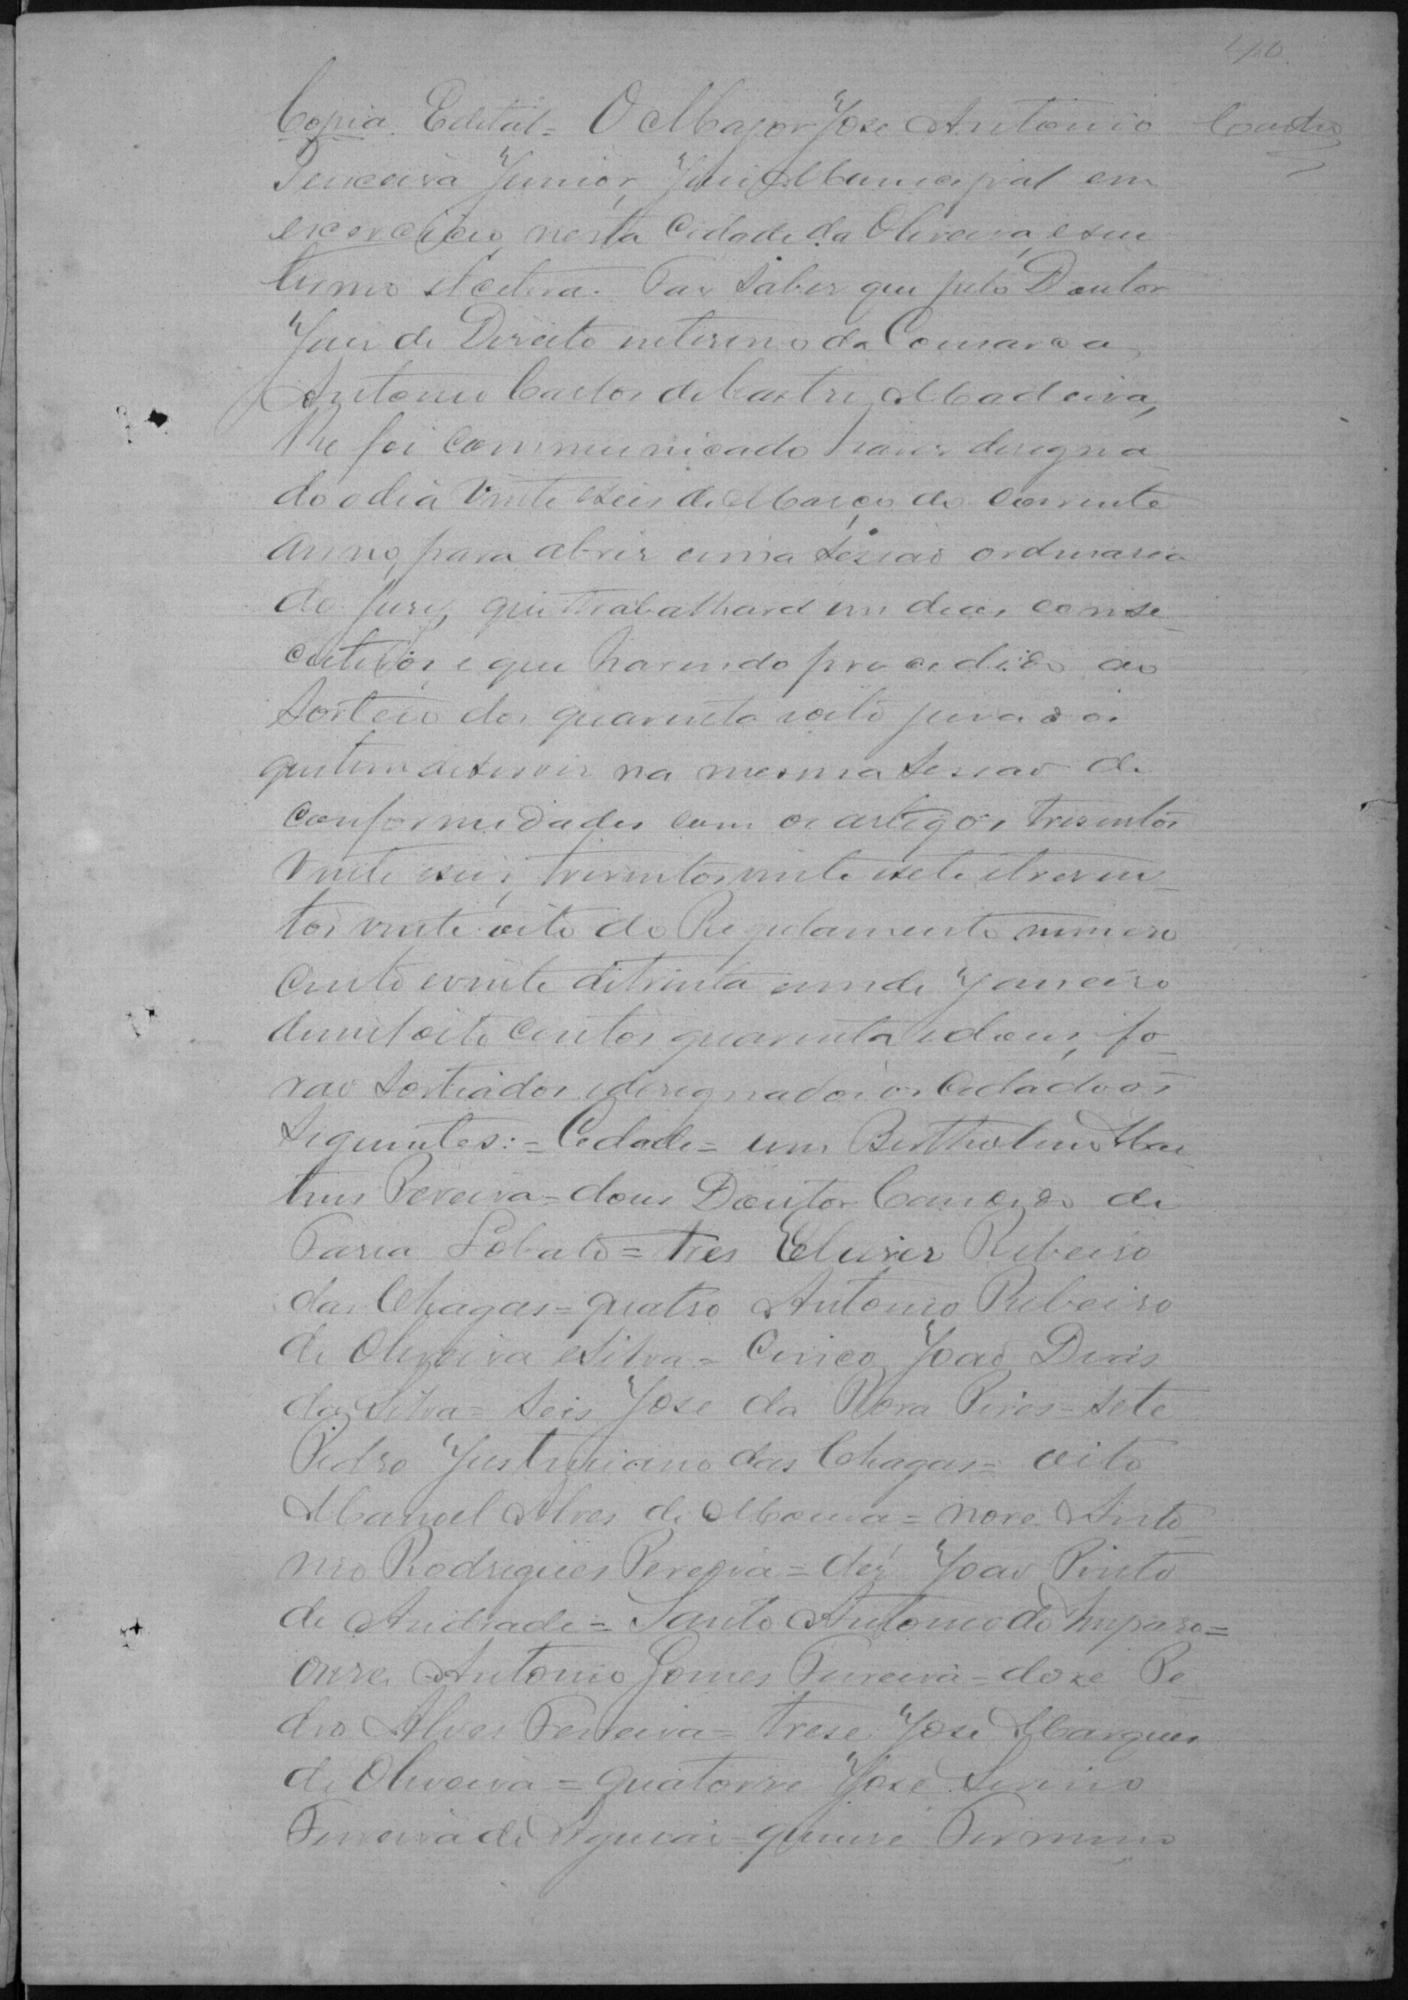 Copia. Edital = O Major José Antonio
Teixeira Junior, Juiz Municipal em
exercicio, nesta Cidade da Oliveira, e seu
termo et cetera. Faz saber que pelo Doutor
Juiz de Direito interino da Comarca
Antonio Carlos de Castro Madeira,
lhe foi communicado haver designa-
do o dia vinte e seis de Março do corrente
anno, para abrir uma sessão ordinaria
do jury, que trabalhará em dias conse-
cutivos, e que havendo procedido ao
sorteio dos quarenta e oito jurados
que tem de servir na mesma sessão de
conformidades com os artigos tresentos
vinte e seis, tresentos vinte e sete e tresen-
tos vinte oito do Regulamento numero
cento e vinte de trinta e um de Janeiro
de mil oito centos quarenta e dous, fo-
rão sorteados e designados os Cidadãos
seguintes: = Cidade = um Bertholino Mar-
tins Pereira = dous Doutor Cancido de
Faria Lobato = tres Eliezer Ribeiro
das Chagas = quatro Antonio Ribeiro
de Oliveira e Silva = Cinco João Diniz
da Silva = seis José da Roza Pires = sete
Pedro Justiniano das Chagas = oito
Manoel Alves de Moura = nove Anto-
nio Rodrigues Pereira = dez João Pinto
de Andrade = Santo Antonio do Amparo =
onze Antonio Gomes Ferreira = doze Pe-
dro Alves Ferreira = treze José Marques
de Oliveira = quatorze José
Ferreira de Aguiar = quinze Firmino